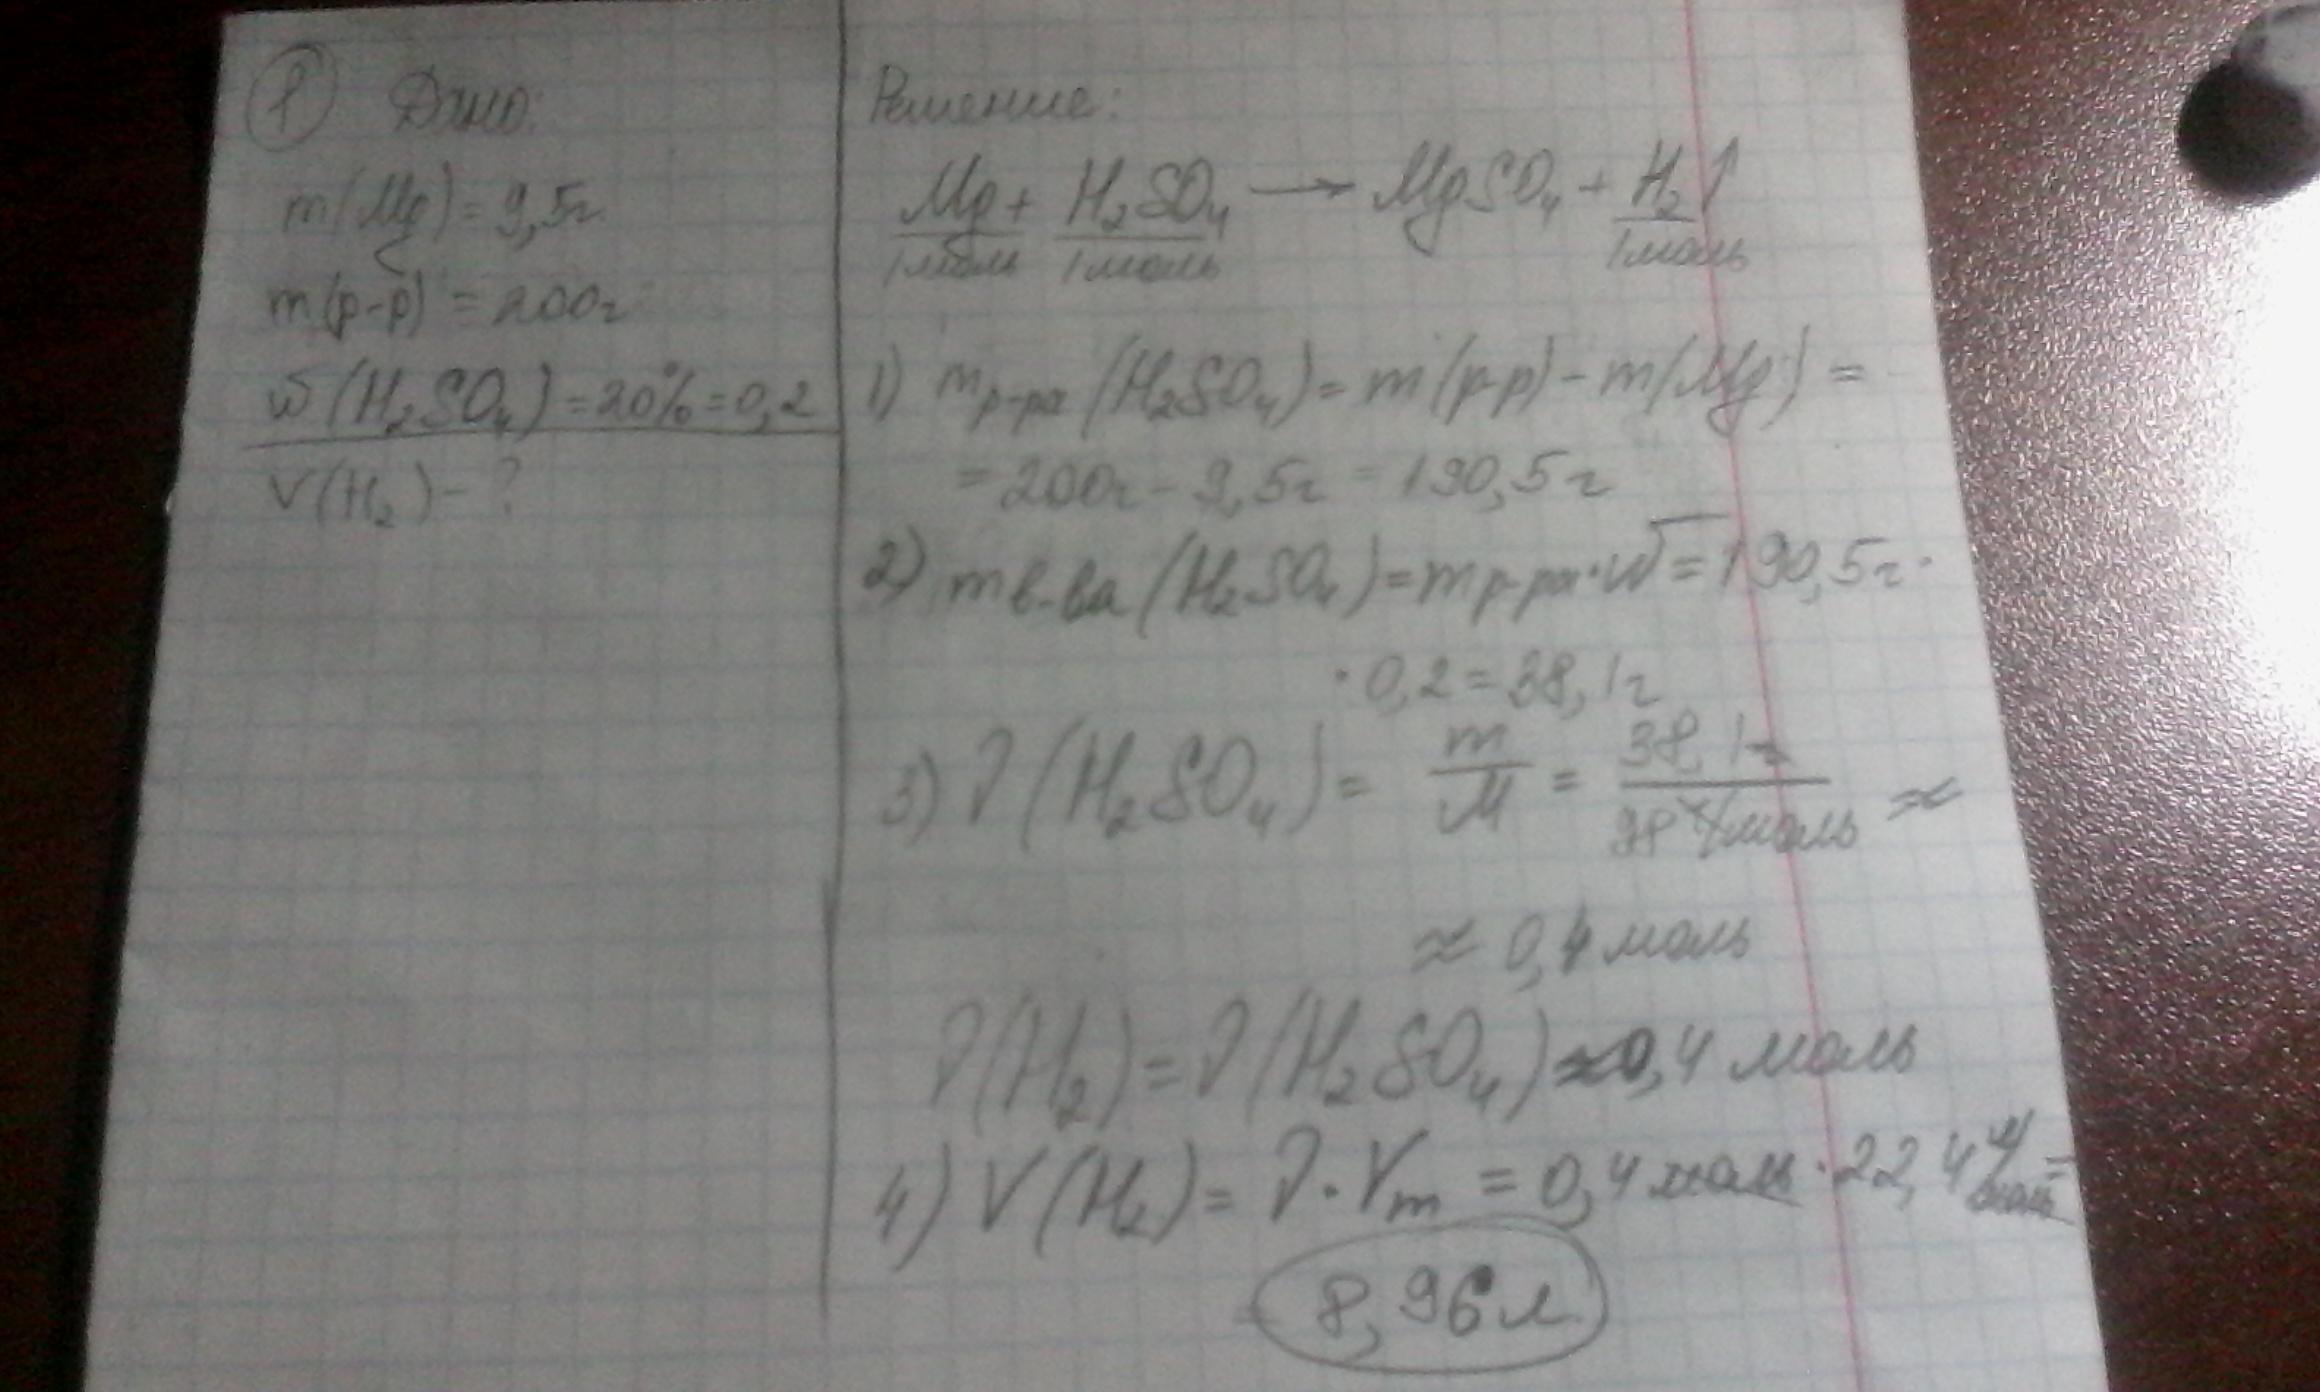 1 Дано:
m(Mg) = 9,5г
m(р-р) = 200г
ω(H₂SO₄) = 20% = 0,2
V(H₂) - ?
Решение:
Mg + H₂SO₄ → MgSO₄ + H₂↑
1моль 1моль 1моль
1) mр-ра (H₂SO₄) = m(р-р) - m(Mg) =
= 200г - 9,5г = 190,5г
2) mв-ва (H₂SO₄) = mр-ра · ω = 190,5г ·
· 0,2 = 38,1г
3) ν(H₂SO₄) = m/M = 38,1г/98 г/моль ≈
≈ 0,4 моль
ν(H₂) = ν(H₂SO₄) ≈ 0,4 моль
4) V(H₂) = ν · Vm = 0,4 моль · 22,4 л/моль =
= 8,96 л